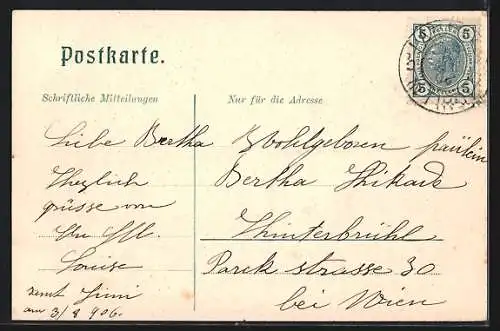 Postkarte.
5 5
5 5
Schriftliche Mitteilungen
Nur für die Adresse
Liebe Bertha
Herzlich
grüsse von
Louise
am 3/8 906.
Wohlgeboren fräulein
Bertha
Hinterbrühl
Parck strasse 30
bei Wien